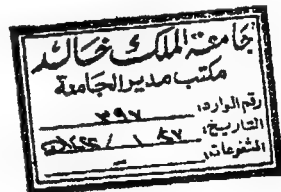 جامعة الملك خالد
مكتب مدير الجامعة
رقم الوارد: ٣٩٧
التاريخ:
المشفوعات: -